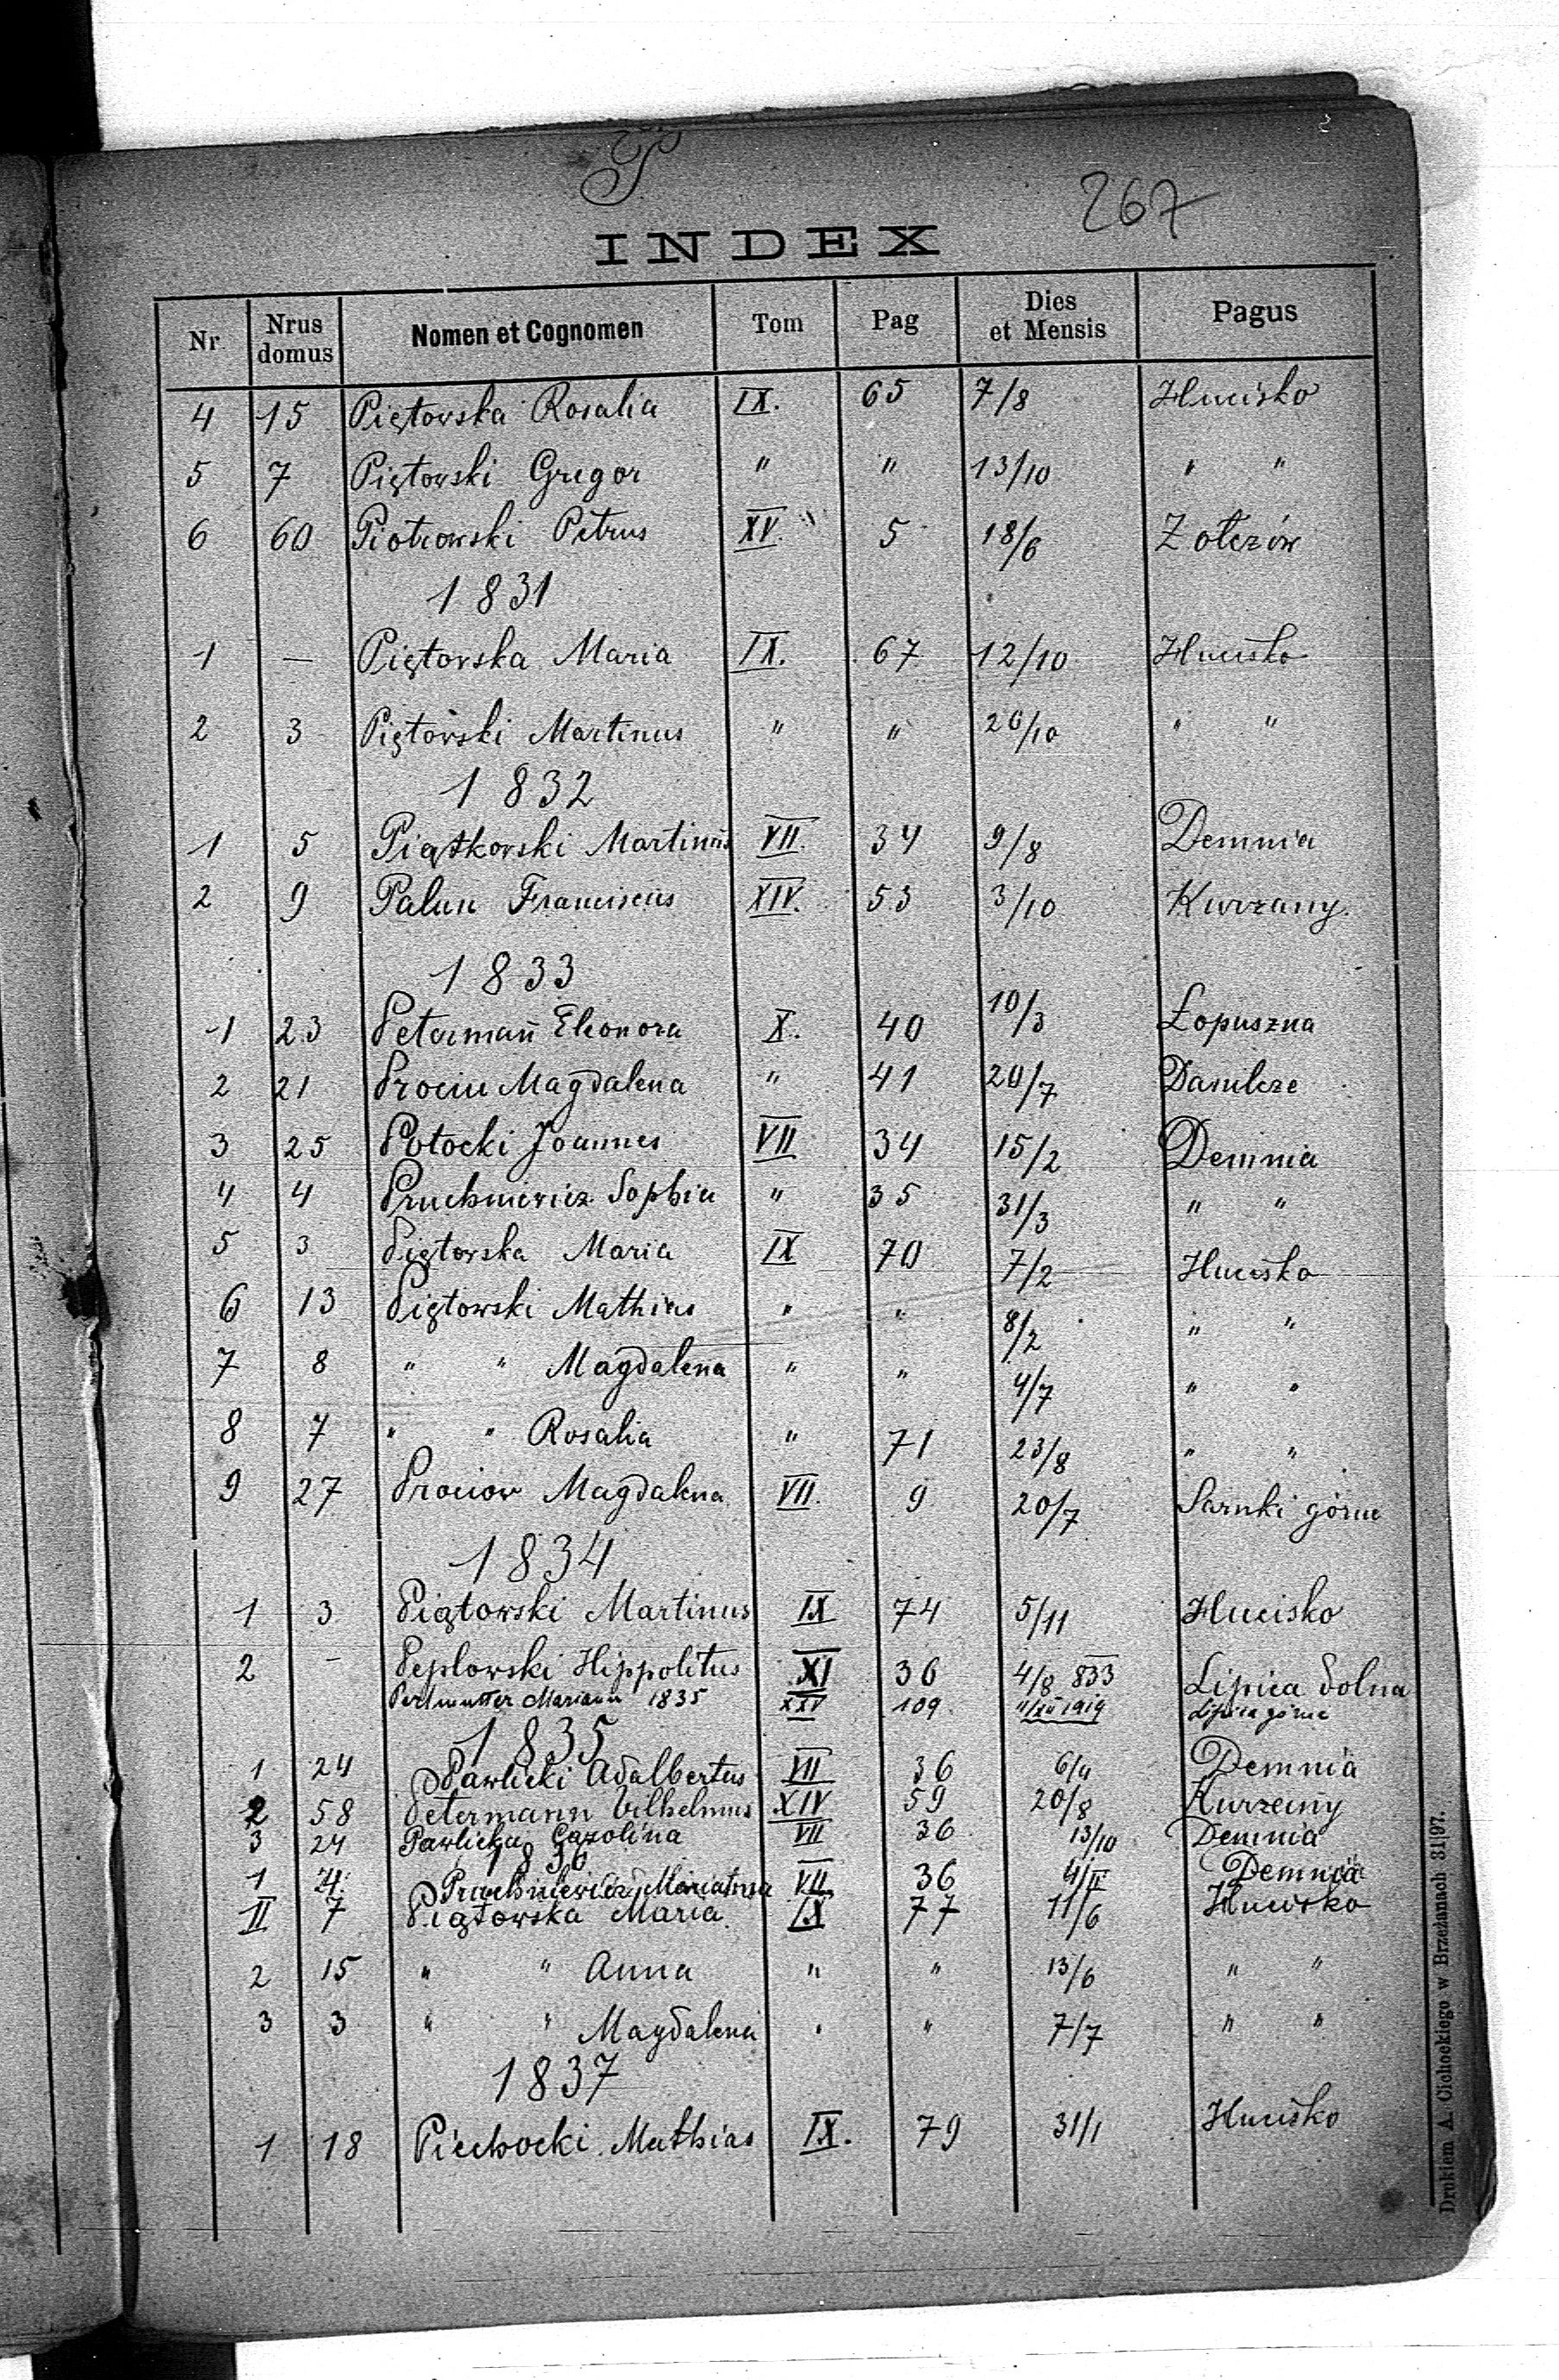 P
267
INDEX
Nr Nrus domus Nomen et Cognomen Tom Pag Dies et Mensis Pagus
4 15 Piętowska Rosalia IX. 65 7/8 Hucisko
5 7 Piętowski Gregor " " 13/10 " "
6 60 Piotrowski Petrus XV. 5 18/6 Żołczów
1831
1 — Piętowska Maria IX. 67 12/10 Hucisko
2 3 Piętowski Martinus " " 20/10 " "
1832
1 5 Piątkowski Martinus VII. 34 9/8 Demnia
2 9 Palun Franciscus XIV. 53 3/10 Kurzany.
1833
1 23 Petermañ Eleonora X. 40 10/3 Łopuszna
2 21 Prociu Magdalena " 41 20/7 Danilcze
3 25 Potocki Joannes VII 34 15/2 Demnia
4 4 Pruchniewicz Sophia " 35 31/3 " "
5 3 Piętowska Maria IX 70 7/2 Hucisko
6 13 Piętowski Mathias " " 8/2 " "
7 8 " " Magdalena " " 4/7 " "
8 7 " " Rosalia " 71 23/8 " "
9 27 Prociow Magdalena VII. 9 20/7 Sarnki górne
1834
1 3 Piątowski Martinus IX 74 5/11 Hucisko
2 – Peplowski Hippolitus XI 36 4/8 833 Lipica dolna
Perlmutter Mariann 1835 XXV 109 11/XII 1919 Lipica górna
1835
1 24 Pawlicki Adalbertus VII 36 6/4 Demnia
2 58 Petermann Vilhelmus XIV 59 20/8 Kurzany
3 24 Pawlicka Carolina VII 36 13/10 Demnia
1836
1 4 Pruchniewicz Marianna VII 36 4/II Demnia
II 7 Piątowska Maria IX 77 11/6 Hucisko
2 15 " " Anna " " 13/6 " "
3 3 " " Magdalena " " 7/7 " "
1837
1 18 Piechocki Mathias IX. 79 31/1 Hucisko
Drukiem A. Cichockiego w Brzeżanach 31|97.